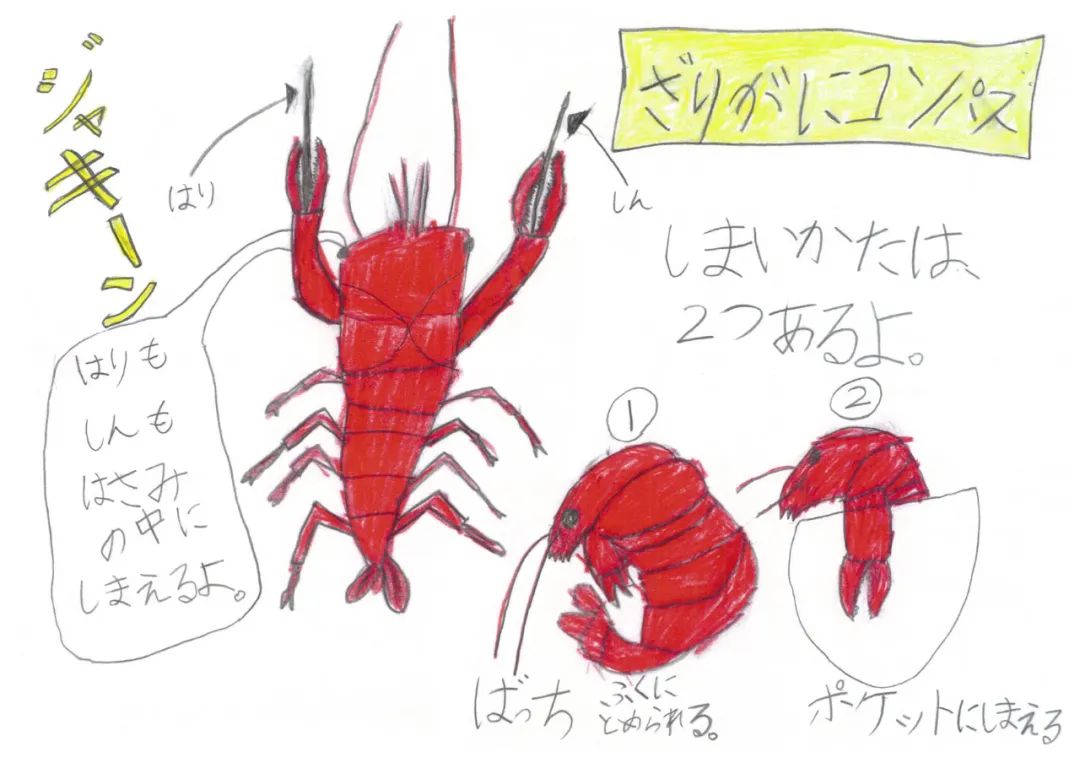 ジャキーン
ざりがにコンパス
はり
しん
しまいかたは、
2つあるよ。
はりも
しんも
はさみ
の中に
しまえるよ。
①
②
ばっち
ふくに
とめられる。
ポケットにしまえる